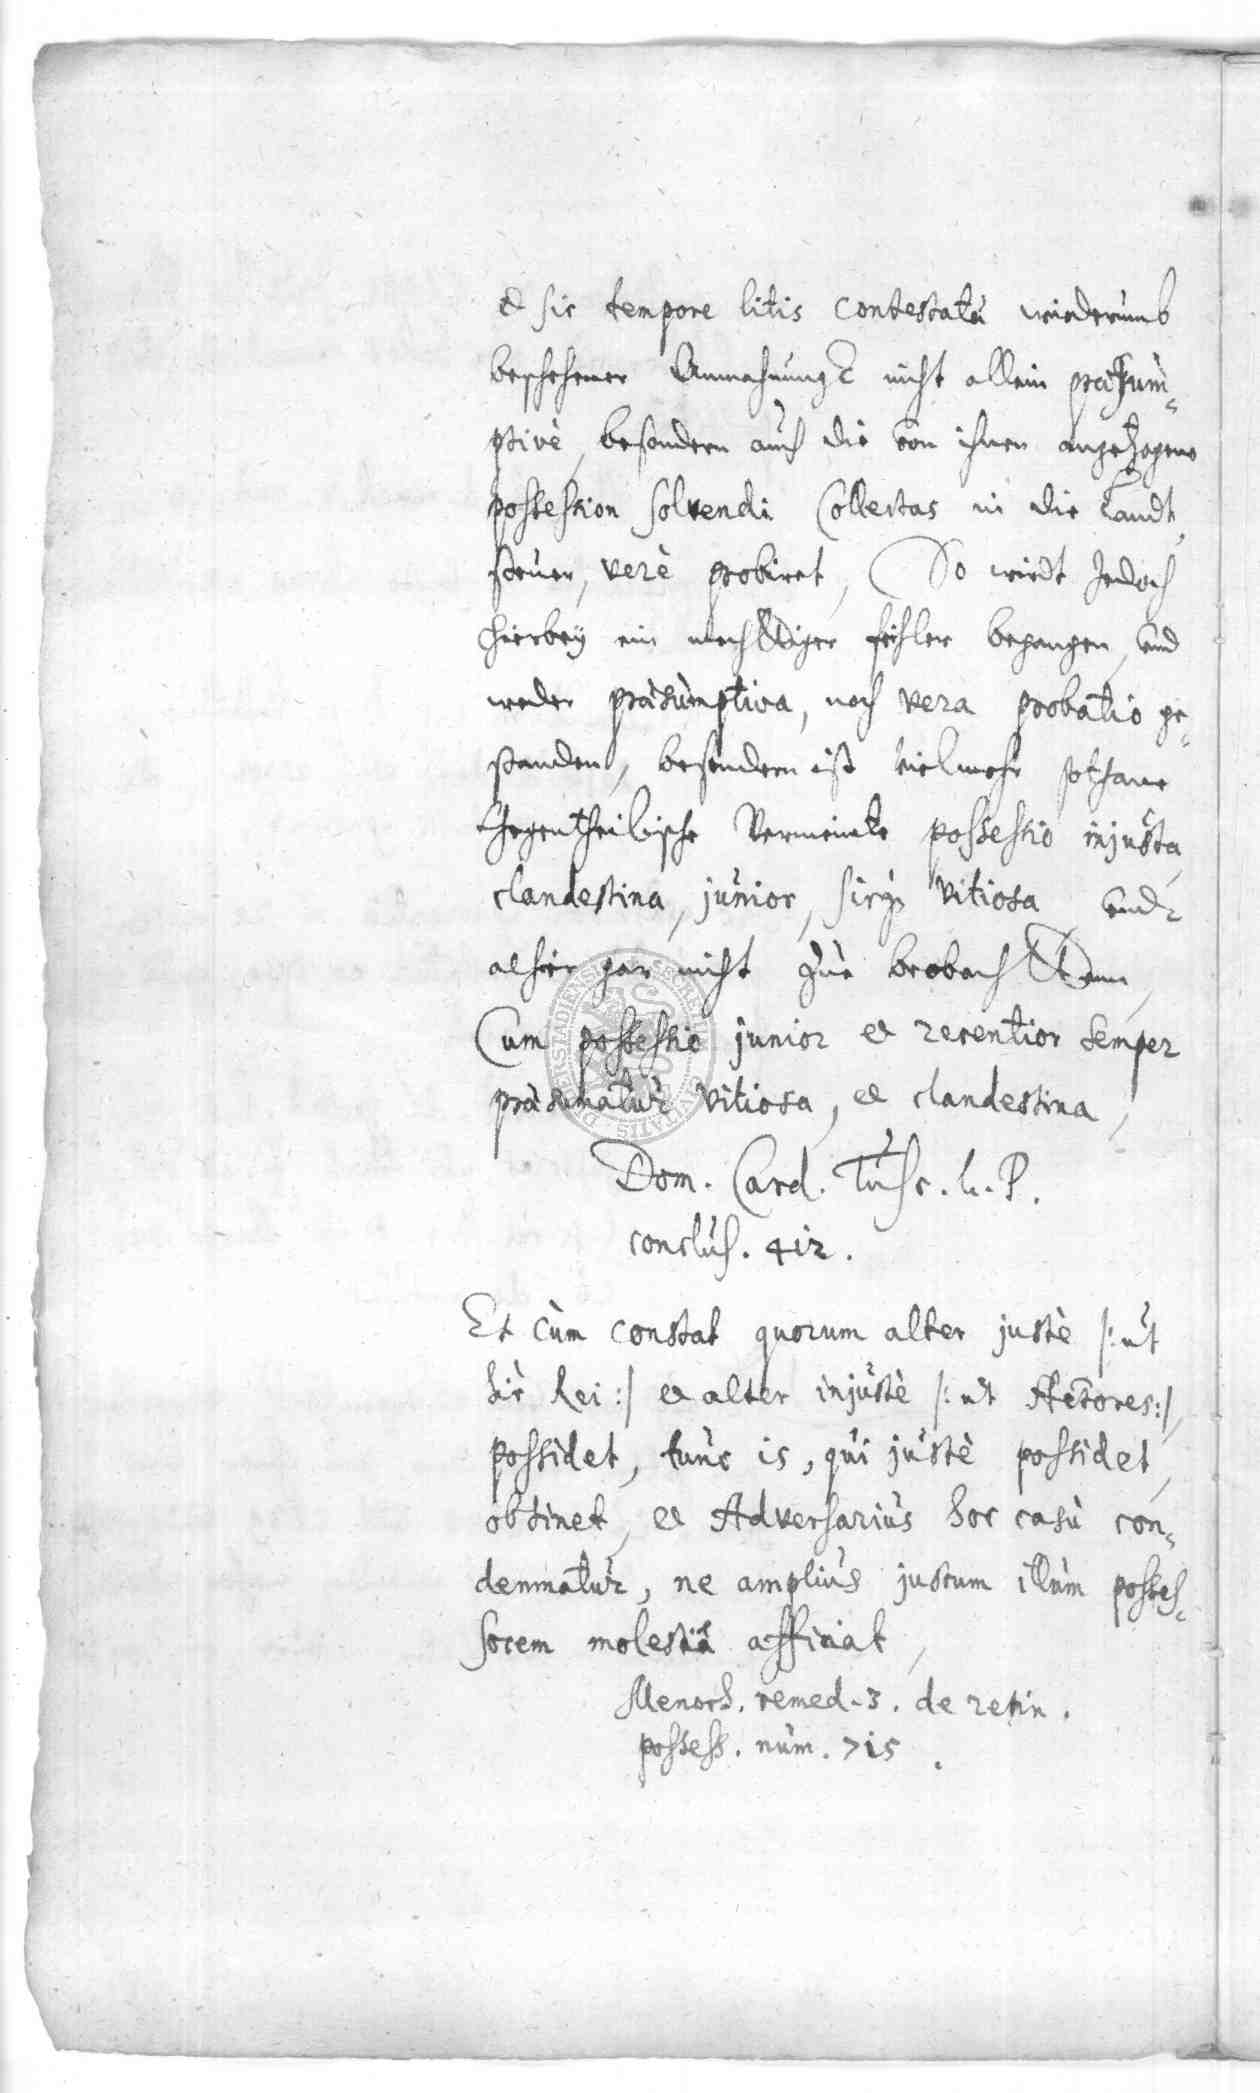 et sic tempore litis contestatae wiederumb
beschehener Anmahnung nicht allein praesum-
ptivè, besondern auch die von ihnen angezogene
possession solvendi Collectas in die Landt
steuer, verè probiret, So wirdt Jedoch
hierbey ein mechtiger fehler begangen, und
weder praesumptiva, noch vera probatio ge-
standen, besondern ist vielmehr sothane
Gegentheilische Vermeinte possessio injusta,
clandestina, junior, sicq3 vitiosa und
alhier gar nicht zue beobachten,
Cum possessio junior et recentior semper
praesumatur vitiosa, et clandestina,
Dom. Card. Tusc. l. P.
conclus. 412.
Et cùm constat quorum alter justè /: ut
hic Rei :/ et alter injustè /: ut Actores :/,
possidet, tunc is, qui justè possidet,
obtinet, et Adversarius hoc casu con-
demnatur, ne amplius justum illum posses-
sorem molestiâ afficiat,
Menoch. remed. 3. de retin.
possess. num. 715.